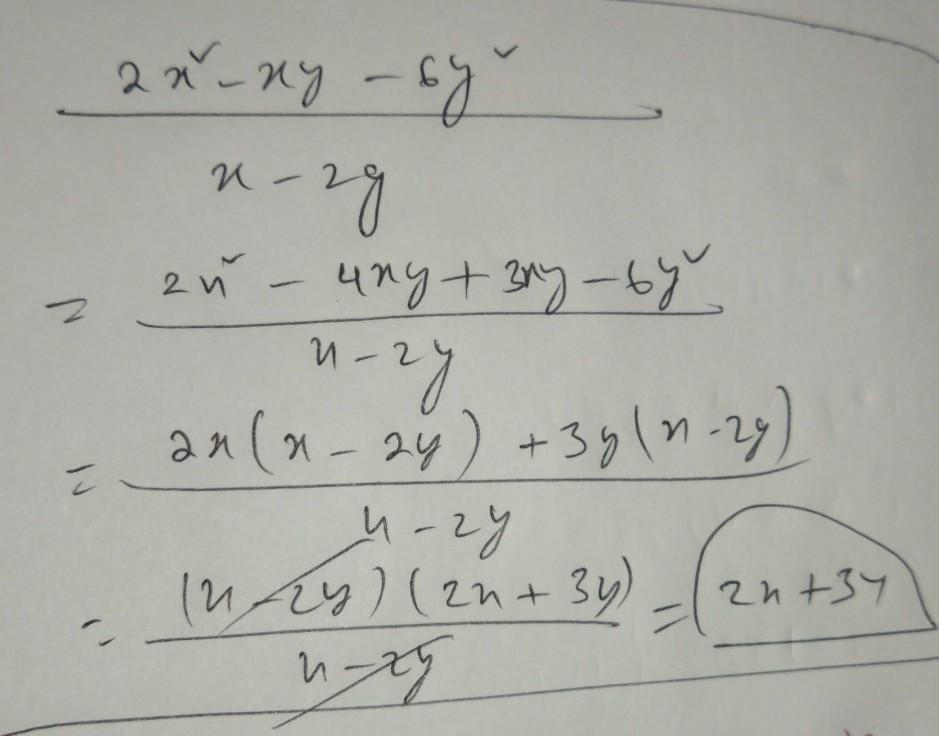 2x² - xy - 6y²
x - 2y
= 2x² - 4xy + 3xy - 6y²
x - 2y
= 2x(x - 2y) + 3y(x - 2y)
x - 2y
= (x - 2y)(2x + 3y) = 2x + 3y
x - 2y